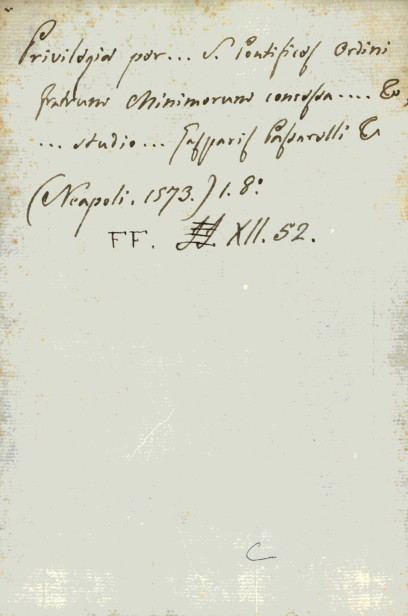 Privilegia per... S. Pontifices Ordini
fratrum Minimorum concessa.... &c,
... studio... Gasparis Passarelli &c
(Neapoli. 1573.) 1. 8º
FF. XII. 52.
C